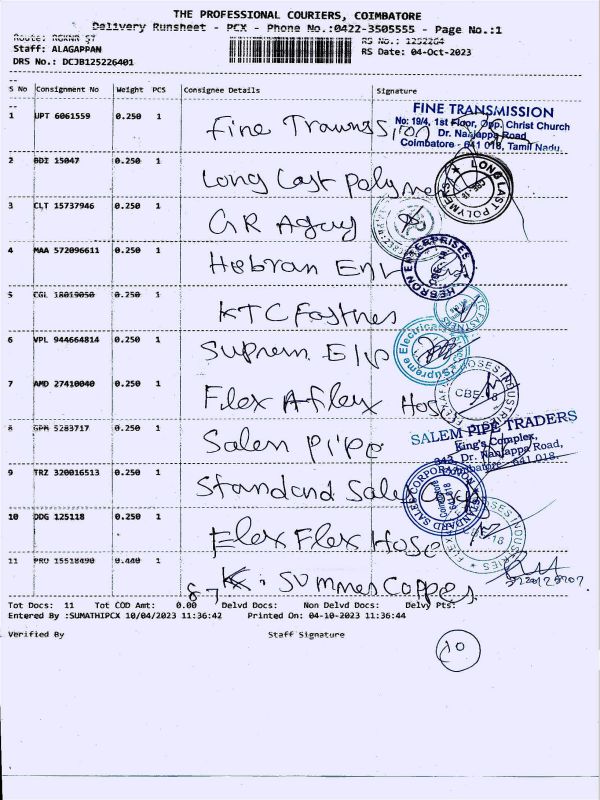 THE PROFESSIONAL COURIERS, COIMBATORE
Delivery Runsheet - PCX - Phone No.:0422-3505555 - Page No.:1
Staff: ALAGAPPAN
RS No.: 1252264
DRS No.: DCJB125226401
RS Date: 04-Oct-2023
S No Consignment No Weight PCS Consignee Details Signature
1 UPT 6061559 0.250 1 Fine
FINE TRANSMISSION
No: 19/4, 1st Floor, Opp. Christ Church
Dr. Nanjappa Road
Coimbatore - 641 018, Tamil Nadu.
2 BDI 15047 0.250 1 Long Last Polymer
LONG LAST POLYMERS
3 CLT 15737946 0.250 1 GR
4 MAA 572096611 0.250 1 Hebran Ent
HEBRON ENTERPRISES
5 CGL 18019050 0.250 1 KTC Fastnes
6 VPL 944664814 0.250 1 Suprem
Supreme Electricals
7 AMD 27410040 0.250 1 Flex Aflex Hos
CBE-18
8 GPM 5283717 0.250 1 Salem Pipe
SALEM PIPE TRADERS
King's Complex,
343, Dr. Nanjappa Road,
Coimbatore - 641 018.
9 TRZ 320016513 0.250 1 Standard Sales Corp
STANDARD SALES CORPORATION
Coimbatore
641 018
10 DDG 125118 0.250 1 Flex Flex Hose
INDUSTRIES
11 PRO 15518490 0.440 1
87 K. Summer Copper
Tot Docs: 11 Tot COD Amt: 0.00 Delvd Docs: Non Delvd Docs: Delvy Pts:
Entered By :SUMATHIPCX 10/04/2023 11:36:42 Printed On: 04-10-2023 11:36:44
Verified By Staff Signature
10